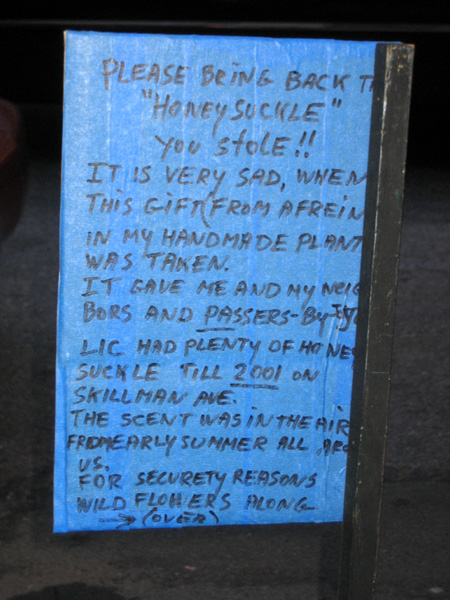 PLEASE BRING BACK T
"HONEYSUCKLE"
YOU STOLE!!
IT IS VERY SAD, WHEN
THIS GIFT (FROM A FREIN
IN MY HANDMADE PLANT
WAS TAKEN.
IT GAVE ME AND MY NEIG
BORS AND PASSERS-BY
LIC HAD PLENTY OF HONEY
SUCKLE TILL 2001 ON
SKILLMAN AVE.
THE SCENT WAS IN THE AIR
FROM EARLY SUMMER ALL ARO
US.
FOR SECURETY REASONS
WILD FLOWERS ALONG
→ (OVER)